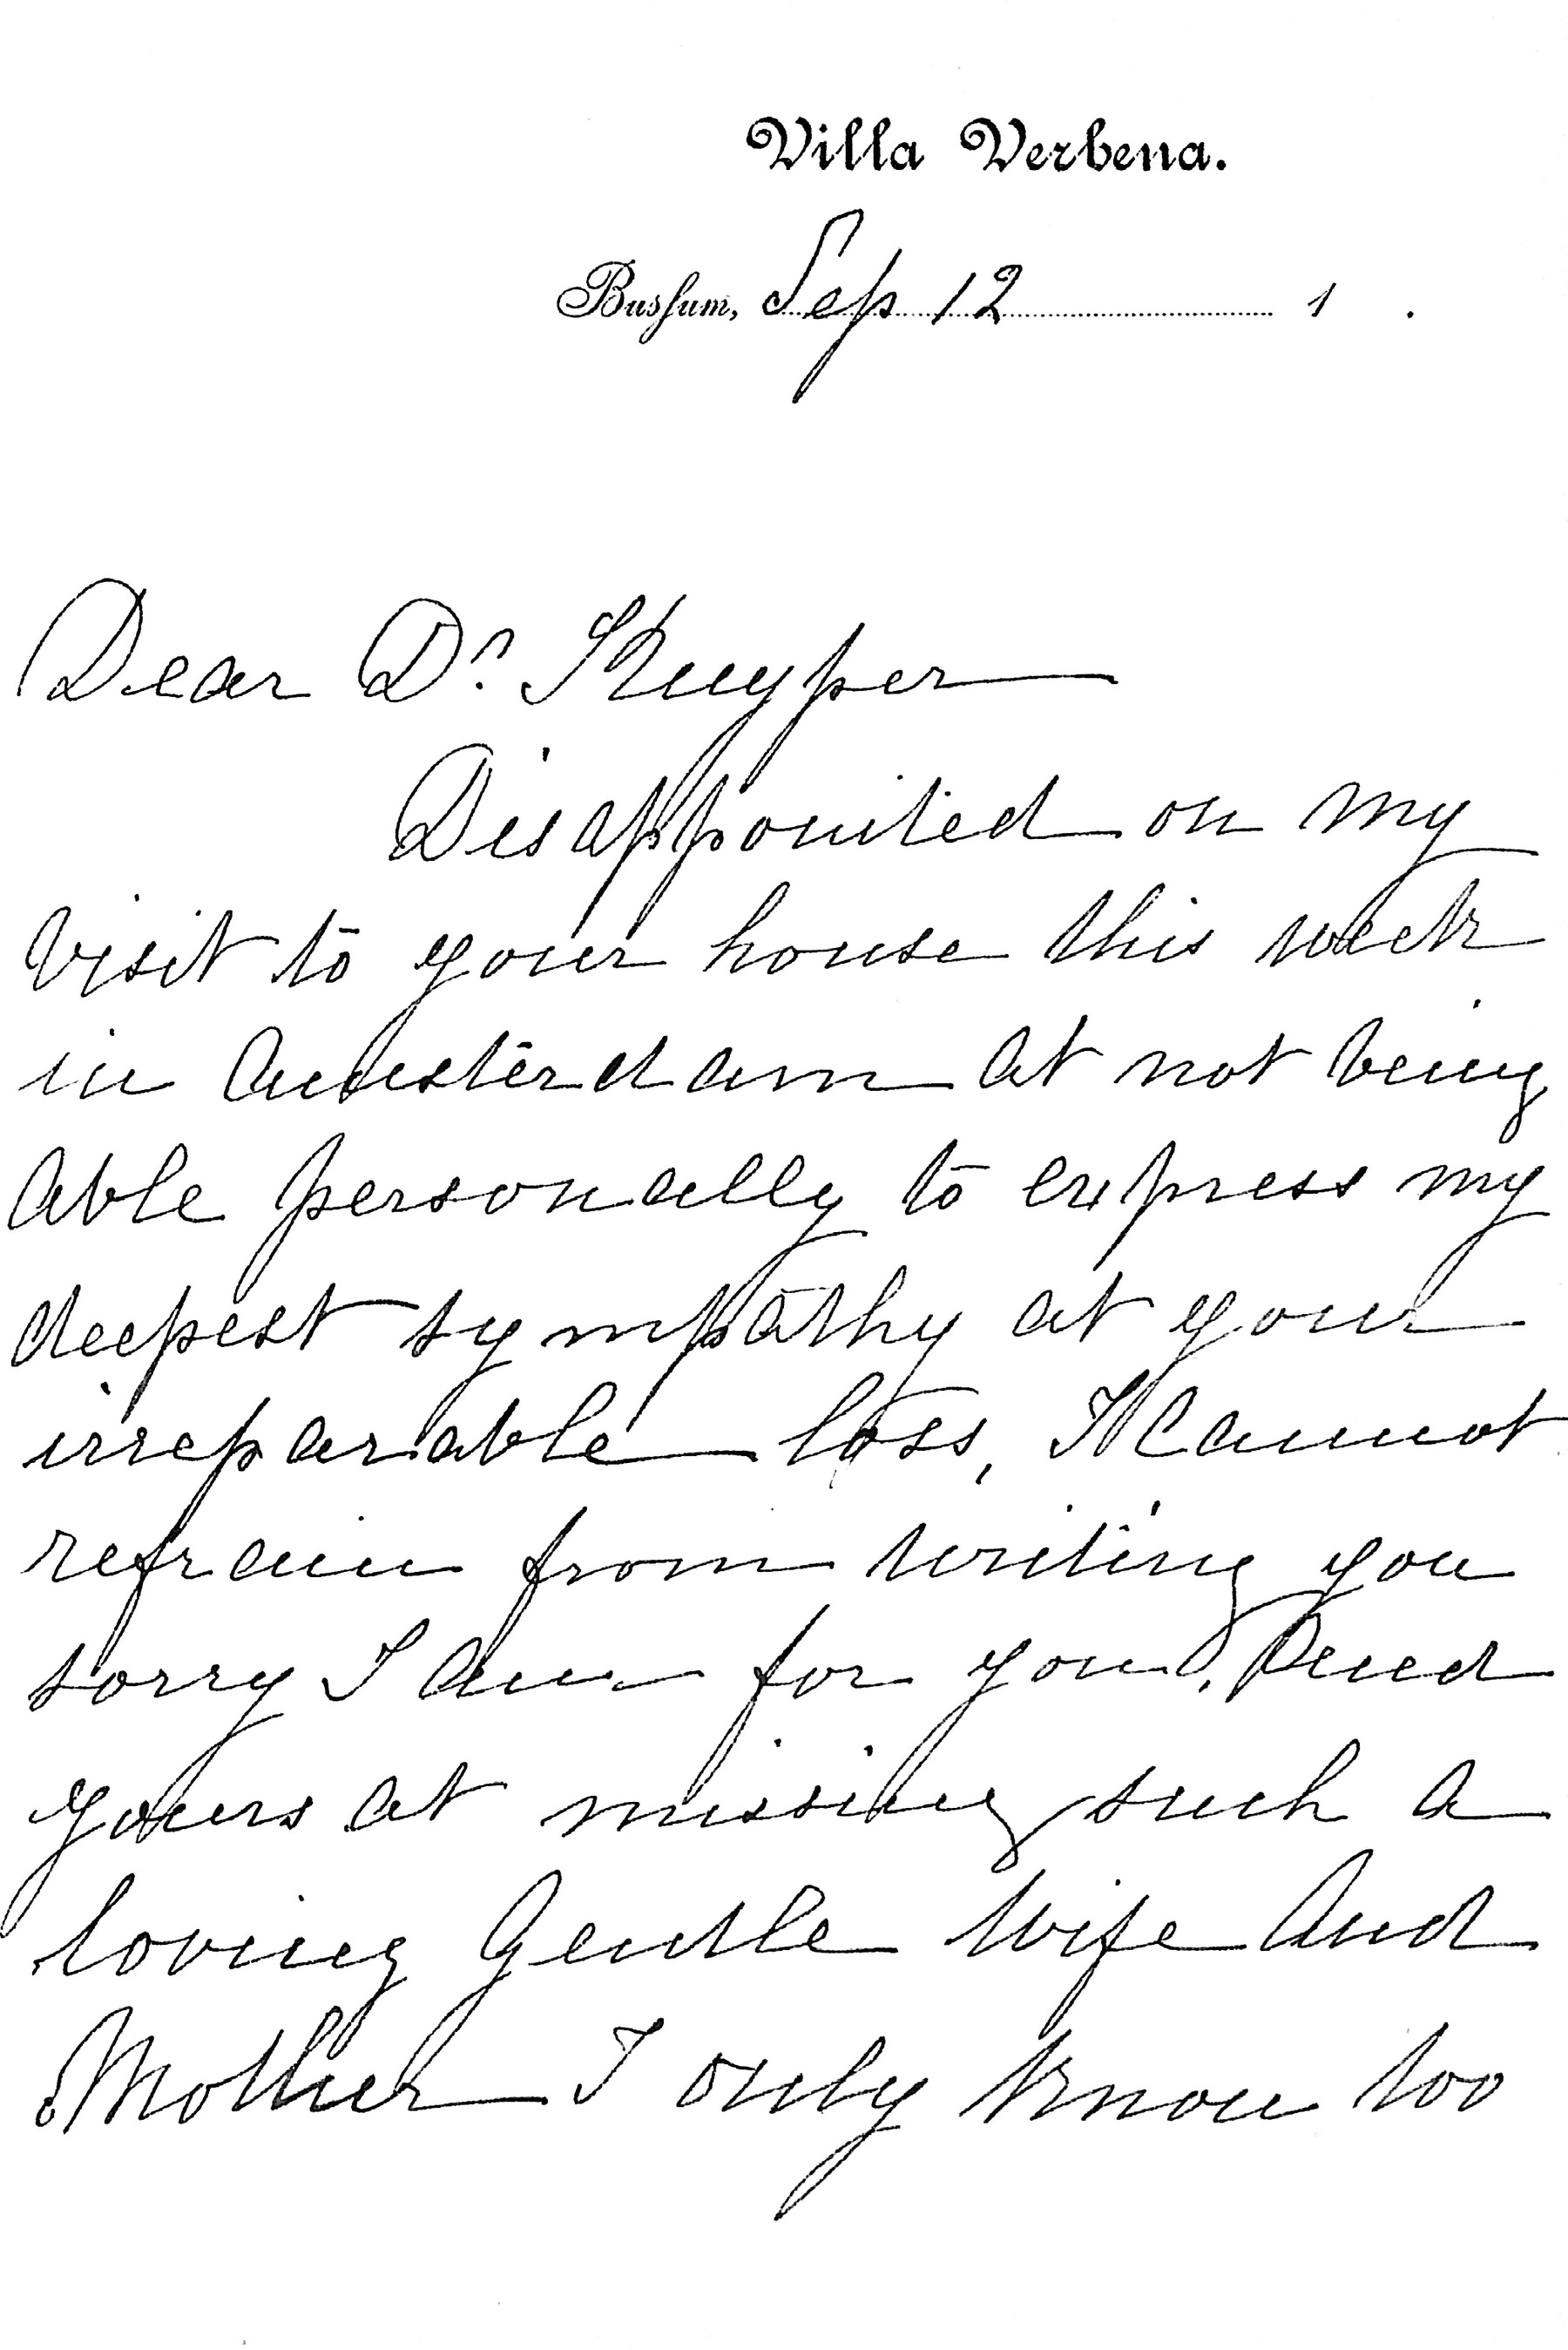 Villa Verbena.
Bussum, Sep 12 1 .
Dear Dr. Kuyper
Disappointed on my
visit to your house this week
in Amsterdam at not being
able personally to express my
deepest sympathy at your
irreparable loss, I cannot
refrain from writing you
sorry I am for you, and
yours at missing such a
loving gentle wife and
Mother I only know too